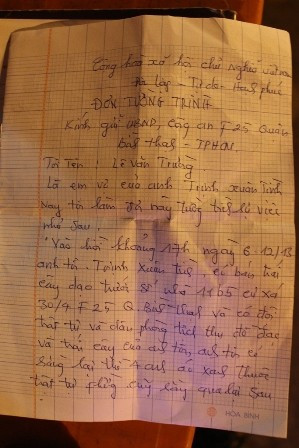 Cộng hòa xã hội chủ nghĩa việt nam
Độc lập - Tự do - Hạnh phúc
ĐƠN TƯỜNG TRÌNH
Kính gửi UBND, Công an F 25 Quận
Bình Thạnh - TPHCM
Tôi Tên : Lê Văn Trường
Là em vợ của anh Trịnh xuân Tình
Nay tôi làm đơn này tường trình lại việc
như sau :
Vào hồi khoảng 17h ngày 6.12/13
anh tôi Trịnh Xuân Tình có bán trái
cây dạo trước số nhà 1165 cư xá
30/4 F 25 Q. Bình Thạnh và có đội
trật tự và dân phòng tịch thu đồ đạc
và trái cây của anh tôi, anh tôi có
giằng lại thì 4 anh áo xanh thuộc
trật tự phường
HOA BINH